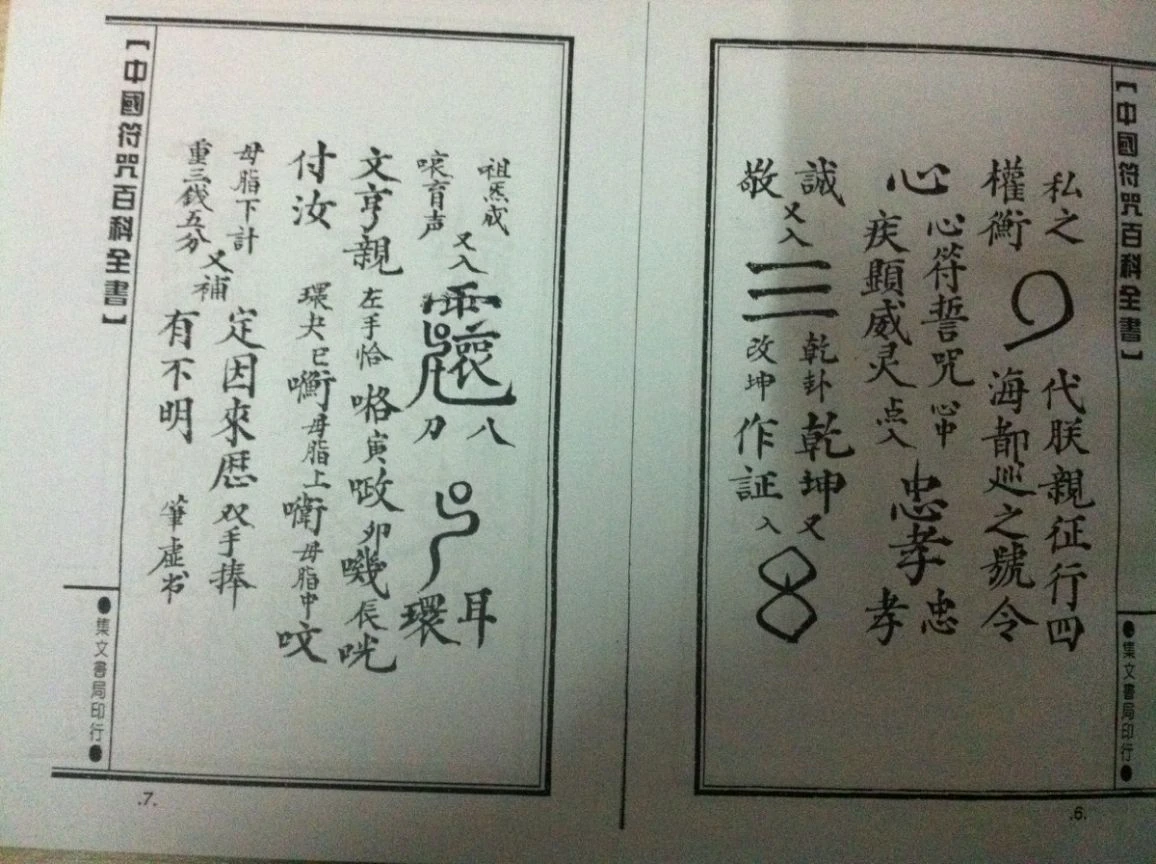 【中國符咒百科全書】
●集文書局印行●
私之
代朕親征行四
權衡
海都巡之號令
心
心符誓咒
心中
疾顯威灵
点入
忠孝
忠
孝
誠
敬
又入
三
乾卦
改坤
乾坤又
作証入
.6.
祖炁成
哀育声
又入
八
刀
耳
環
文亨親
左手恰
喀寅
呶卯
嘰辰
咣
付汝
環夬巳
嘞母脂上
母脂中
呅
母脂下計
重三錢五分
又補
定因來歷
双手捧
有不明
筆虛书
【中國符咒百科全書】
●集文書局印行●
.7.